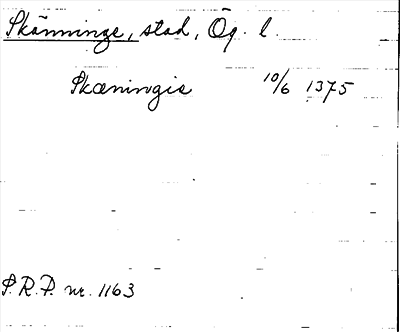 Skänninge, stad, Ög. l.
Skæningis 10/6 1375
S.R.P. nr. 1163